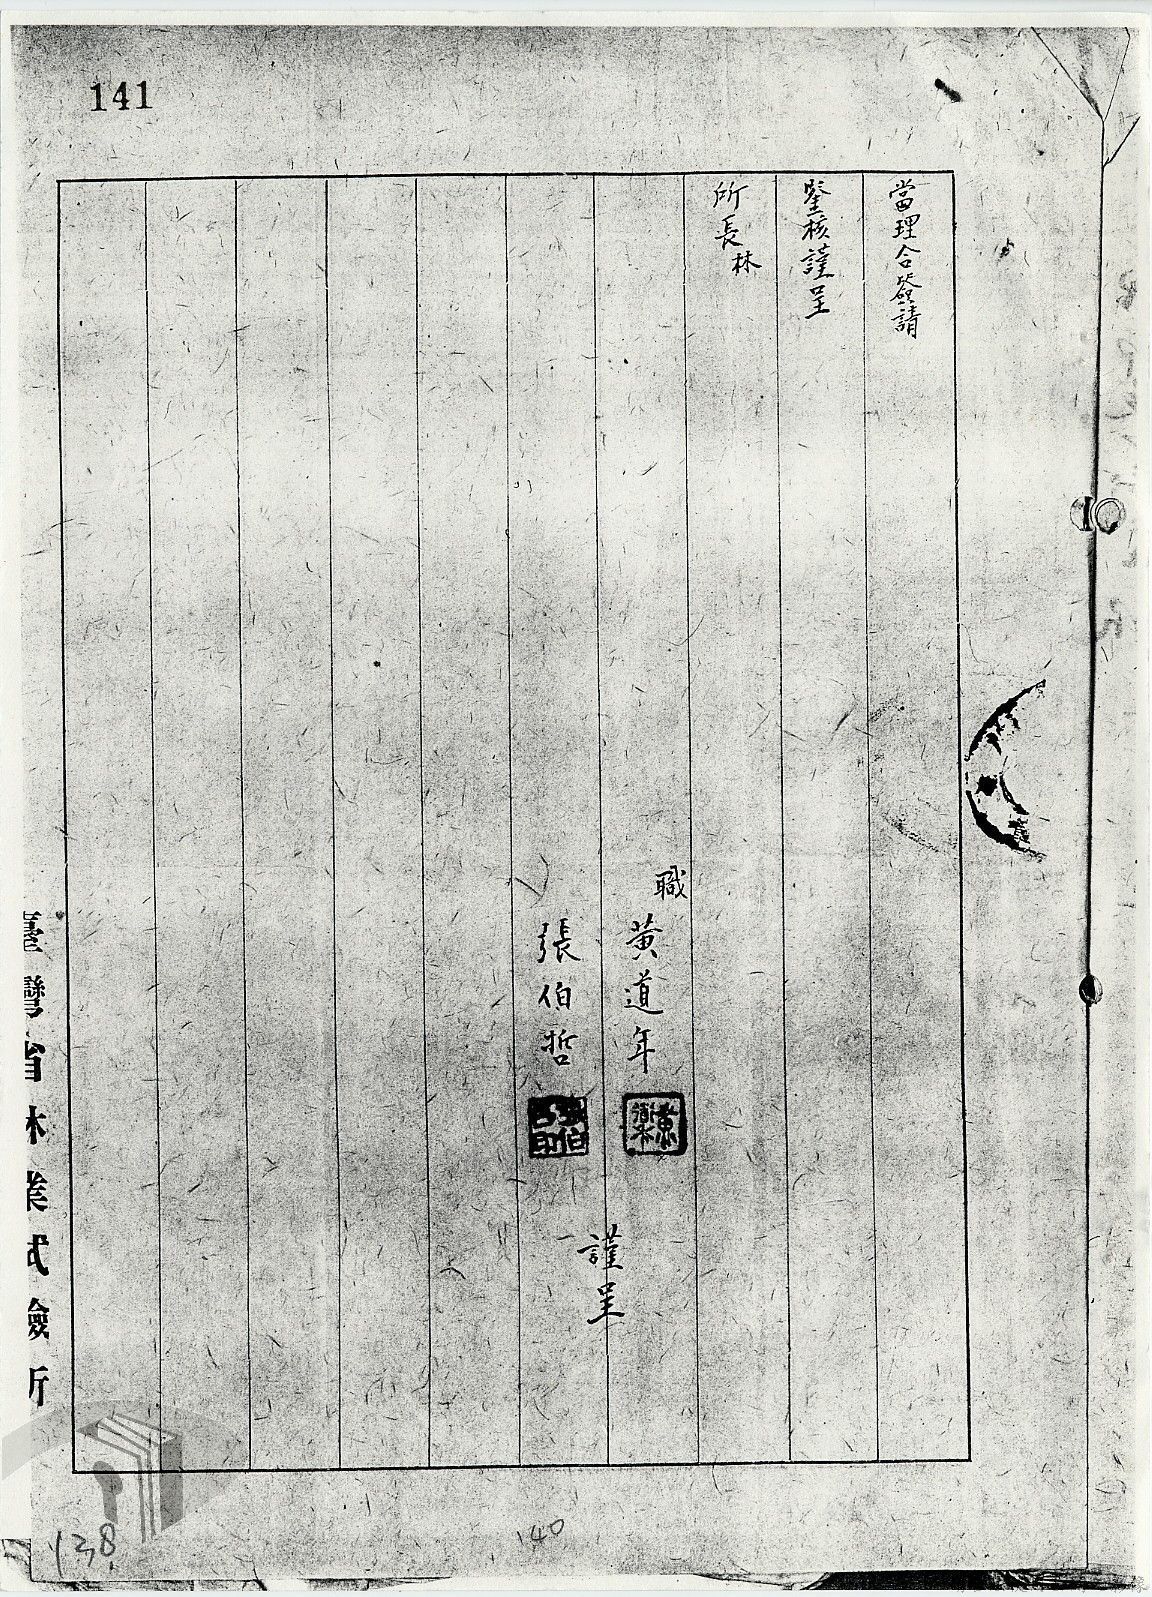 141
當理合簽請
鑒核謹呈
所長林
職
黃道年
張伯哲
謹呈
臺灣省林業試驗所
138
140